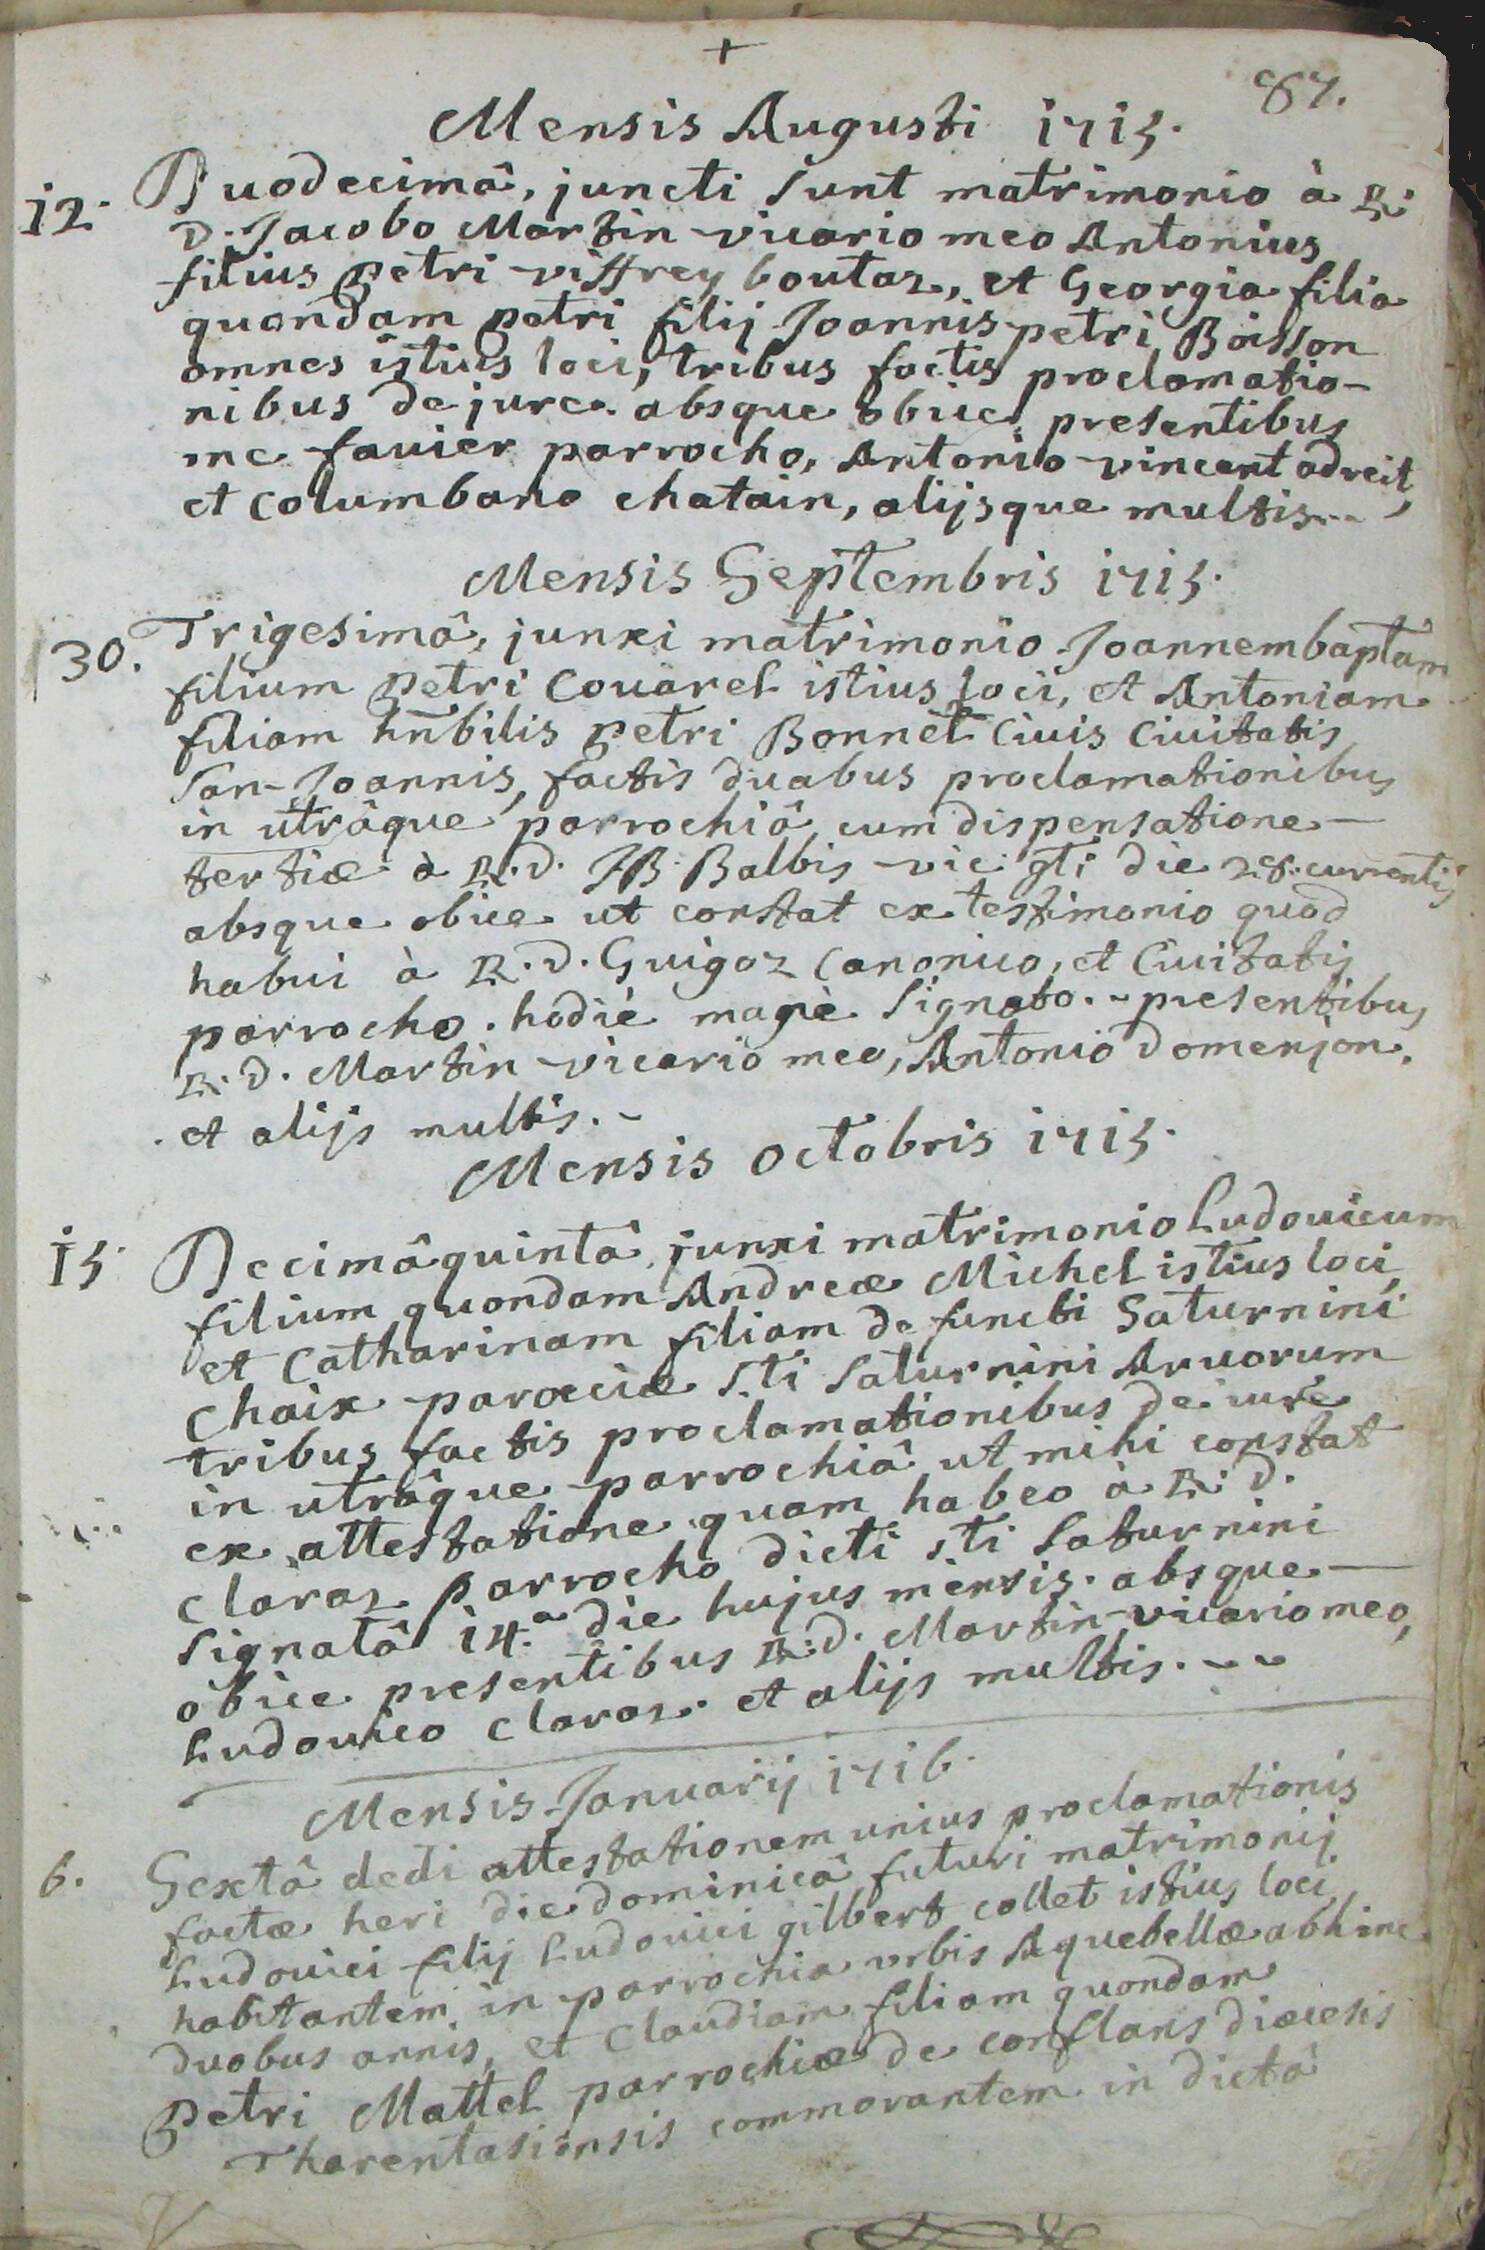 +
87.
Mensis Augusti 1715.
12. Duodecimâ, juncti sunt matrimonio à R:
D. Jacobo Martin vicario meo Antonius
filius petri viffrey boutaz, et Georgia filia
quondam petri filij Joannis petri Boisson
omnes istius loci, tribus factis proclamatio-
nibus de jure absque obice, presentibus
me favier parrocho, Antonio vincent adreit,
et Columbano chatain, alijsque multis..
Mensis Septembris 1715.
30. Trigesimâ, junxi matrimonio Joannembaptam
filium petri Couarel istius loci, et Antoniam
filiam hnbilis petri Bonnet Civis Civitatis
San-Joannis, factis duabus proclamationibus
in utrâque parrochiâ cum dispensatione
tertiæ à R.D. JB. Balbis vic. gti die 28. currentis
absque obice ut constat ex testimonio quod
habui à R.D. Guigoz Canonico, et Civitatis
parrocho. hodiè manè signato. presentibus
R.D. Martin vicario meo, Antonio Domenjon.
et alijs multis.
Mensis Octobris 1715.
15 Decimâquintâ, junxi matrimonio Ludovicum
filium quondam Andreæ Michel istius loci,
et Catharinam filiam defuncti Saturnini
Chaix parœciæ Sti Saturnini Arvorum
tribus factis proclamationibus de iure
in utrâque parrochiâ ut mihi constat
ex attestatione quam habeo à R: D.
Claraz parrocho dicti sti Saturnini
signatâ 14.a die hujus mensis. absque
obice presentibus R:D. Martin vicario meo,
Ludovico Claraz. et alijs multis.
Mensis Januarij 1716.
6. Sextâ dedi attestationem unius proclamationis
factæ heri die dominicâ futuri matrimonij
Ludovici filij Ludovici gilbert collet istius loci,
habitantem in parrochia urbis Aquebellæ abhinc
duobus annis, et Claudiam filiam quondam
Petri Mattel parrochiæ de conflans diœcesis
Tharentasiensis commorantem in dictâ